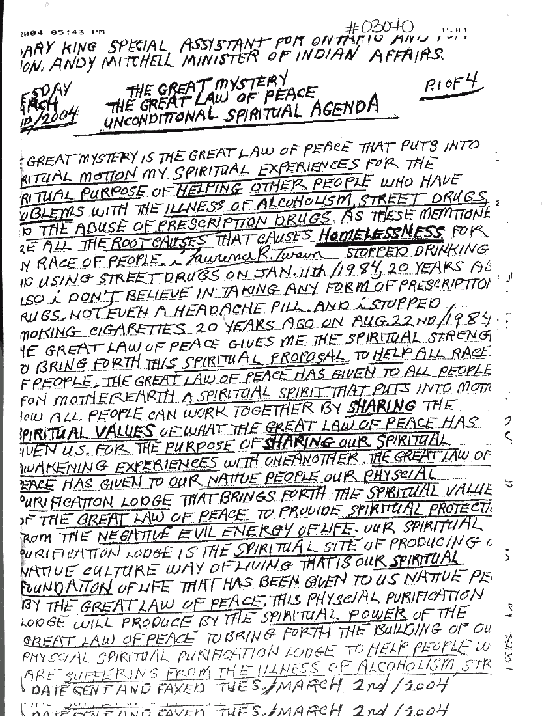 2004 05:43 PM #03040
ARY KING SPECIAL ASSISTANT FOR ONTARIO AND
ON. ANDY MITCHELL MINISTER OF INDIAN AFFAIRS.
ESDAY THE GREAT MYSTERY P.1 OF 4
ARCH THE GREAT LAW OF PEACE
/2004 UNCONDITIONAL SPIRITUAL AGENDA
GREAT MYSTERY IS THE GREAT LAW OF PEACE THAT PUTS INTO
RITUAL MOTION MY SPIRITUAL EXPERIENCES FOR THE
RITUAL PURPOSE OF HELPING OTHER PEOPLE WHO HAVE
OBLEMS WITH THE ILLNESS OF ALCOHOLISM, STREET DRUGS,
D THE ABUSE OF PRESCRIPTION DRUGS. AS THESE MEMTIONE
RE ALL THE ROOT CAUSES THAT CAUSES HOMELESSNESS FOR
N RACE OF PEOPLE. i Lawrence R. STOPPED DRINKING
ND USING STREET DRUGS ON JAN. 11th/1984, 20 YEARS AG
LSO i DON'T BELIEVE IN TAKING ANY FORM OF PRESCRIPTIO
RUGS. NOT EVEN A HEADACHE PILL. AND i STOPPED
MOKING CIGARETTES 20 YEARS AGO ON AUG. 22ND/1984.
HE GREAT LAW OF PEACE GIVES ME THE SPIRITUAL STRENG
O BRING FORTH THIS SPIRITUAL PROPOSAL TO HELP ALL RACE
F PEOPLE. THE GREAT LAW OF PEACE HAS GIVEN TO ALL PEOPLE
PON MOTHER EARTH A SPIRITUAL SPIRIT THAT PUTS INTO MOTI
HOW ALL PEOPLE CAN WORK TOGETHER BY SHARING THE
PIRITUAL VALUES OF WHAT THE GREAT LAW OF PEACE HAS
IVEN US. FOR THE PURPOSE OF SHARING OUR SPIRITUAL
AWAKENING EXPERIENCES WITH ONE ANOTHER. THE GREAT LAW OF
PEACE HAS GIVEN TO OUR NATIVE PEOPLE OUR PHYSCIAL
PURIFICATION LODGE THAT BRINGS FORTH THE SPIRITUAL VALUE
OF THE GREAT LAW OF PEACE TO PROVIDE SPIRITUAL PROTECTI
ROM THE NEGATIVE EVIL ENERGY OF LIFE. OUR SPIRITUAL
PURIFICATION LODGE IS THE SPIRITUAL SITE OF PRODUCING O
NATIVE CULTURE WAY OF LIVING THAT IS OUR SPIRITUAL
FOUNDAITON OF LIFE THAT HAS BEEN GIVEN TO US NATIVE PE
BY THE GREAT LAW OF PEACE. THIS PHYSCIAL PURIFICATION
LODGE WILL PRODUCE BY THE SPIRITUAL POWER OF THE
GREAT LAW OF PEACE TO BRING FORTH THE BUILDING OF OU
PHYSCIAL SPIRITUAL PURIFICATION LODGE TO HELP PEOPLE W
ARE SUFFERING FROM THE ILLNESS OF ALCOHOLISM, STR
DATE SENT AND FAXED TUES./MARCH 2nd/2004
DATE SENT AND FAXED TUES./MARCH 2nd/2004